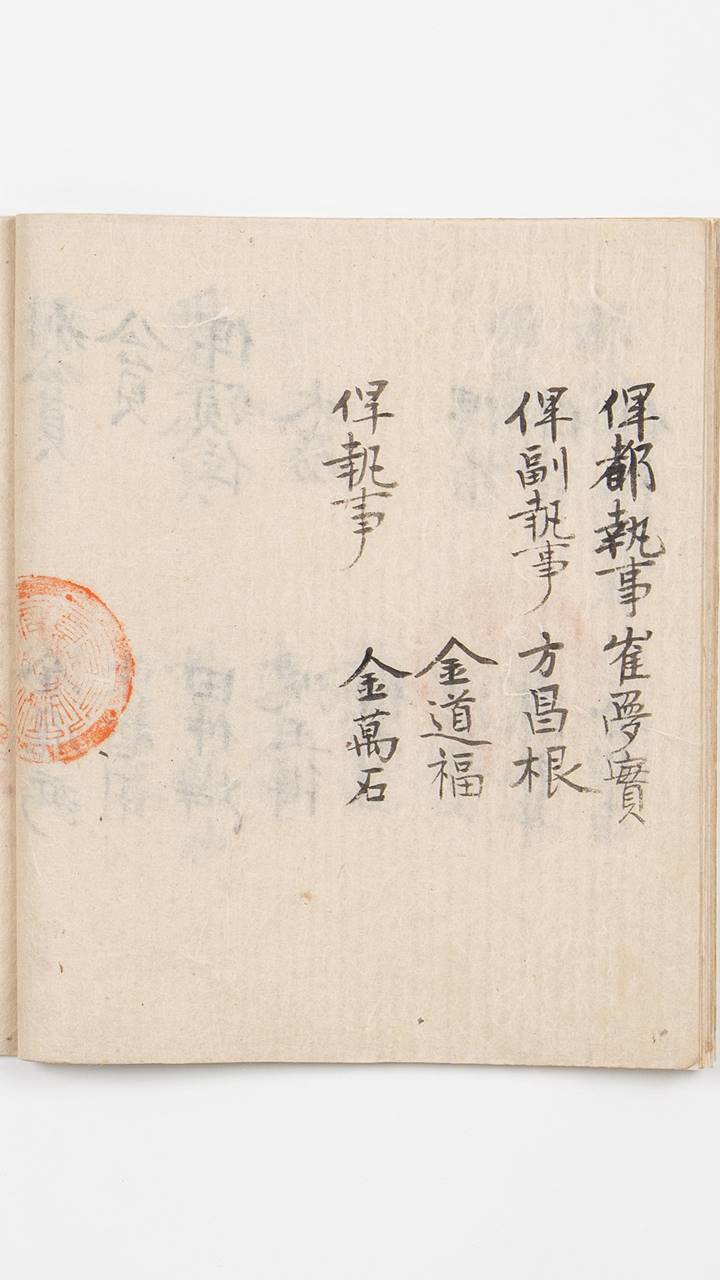 俾都執事 崔夢實
俾副執事 方昌根
金道福
俾執事 金萬石